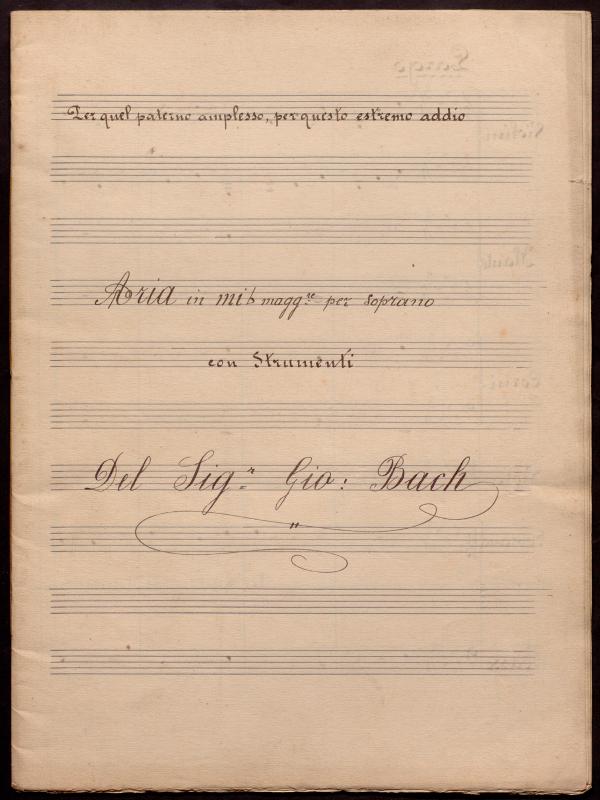 Per quel paterno amplesso, per questo estremo addio
Aria in mi b maggre per soprano
con Strumenti
Del Sigr. Gio: Bach